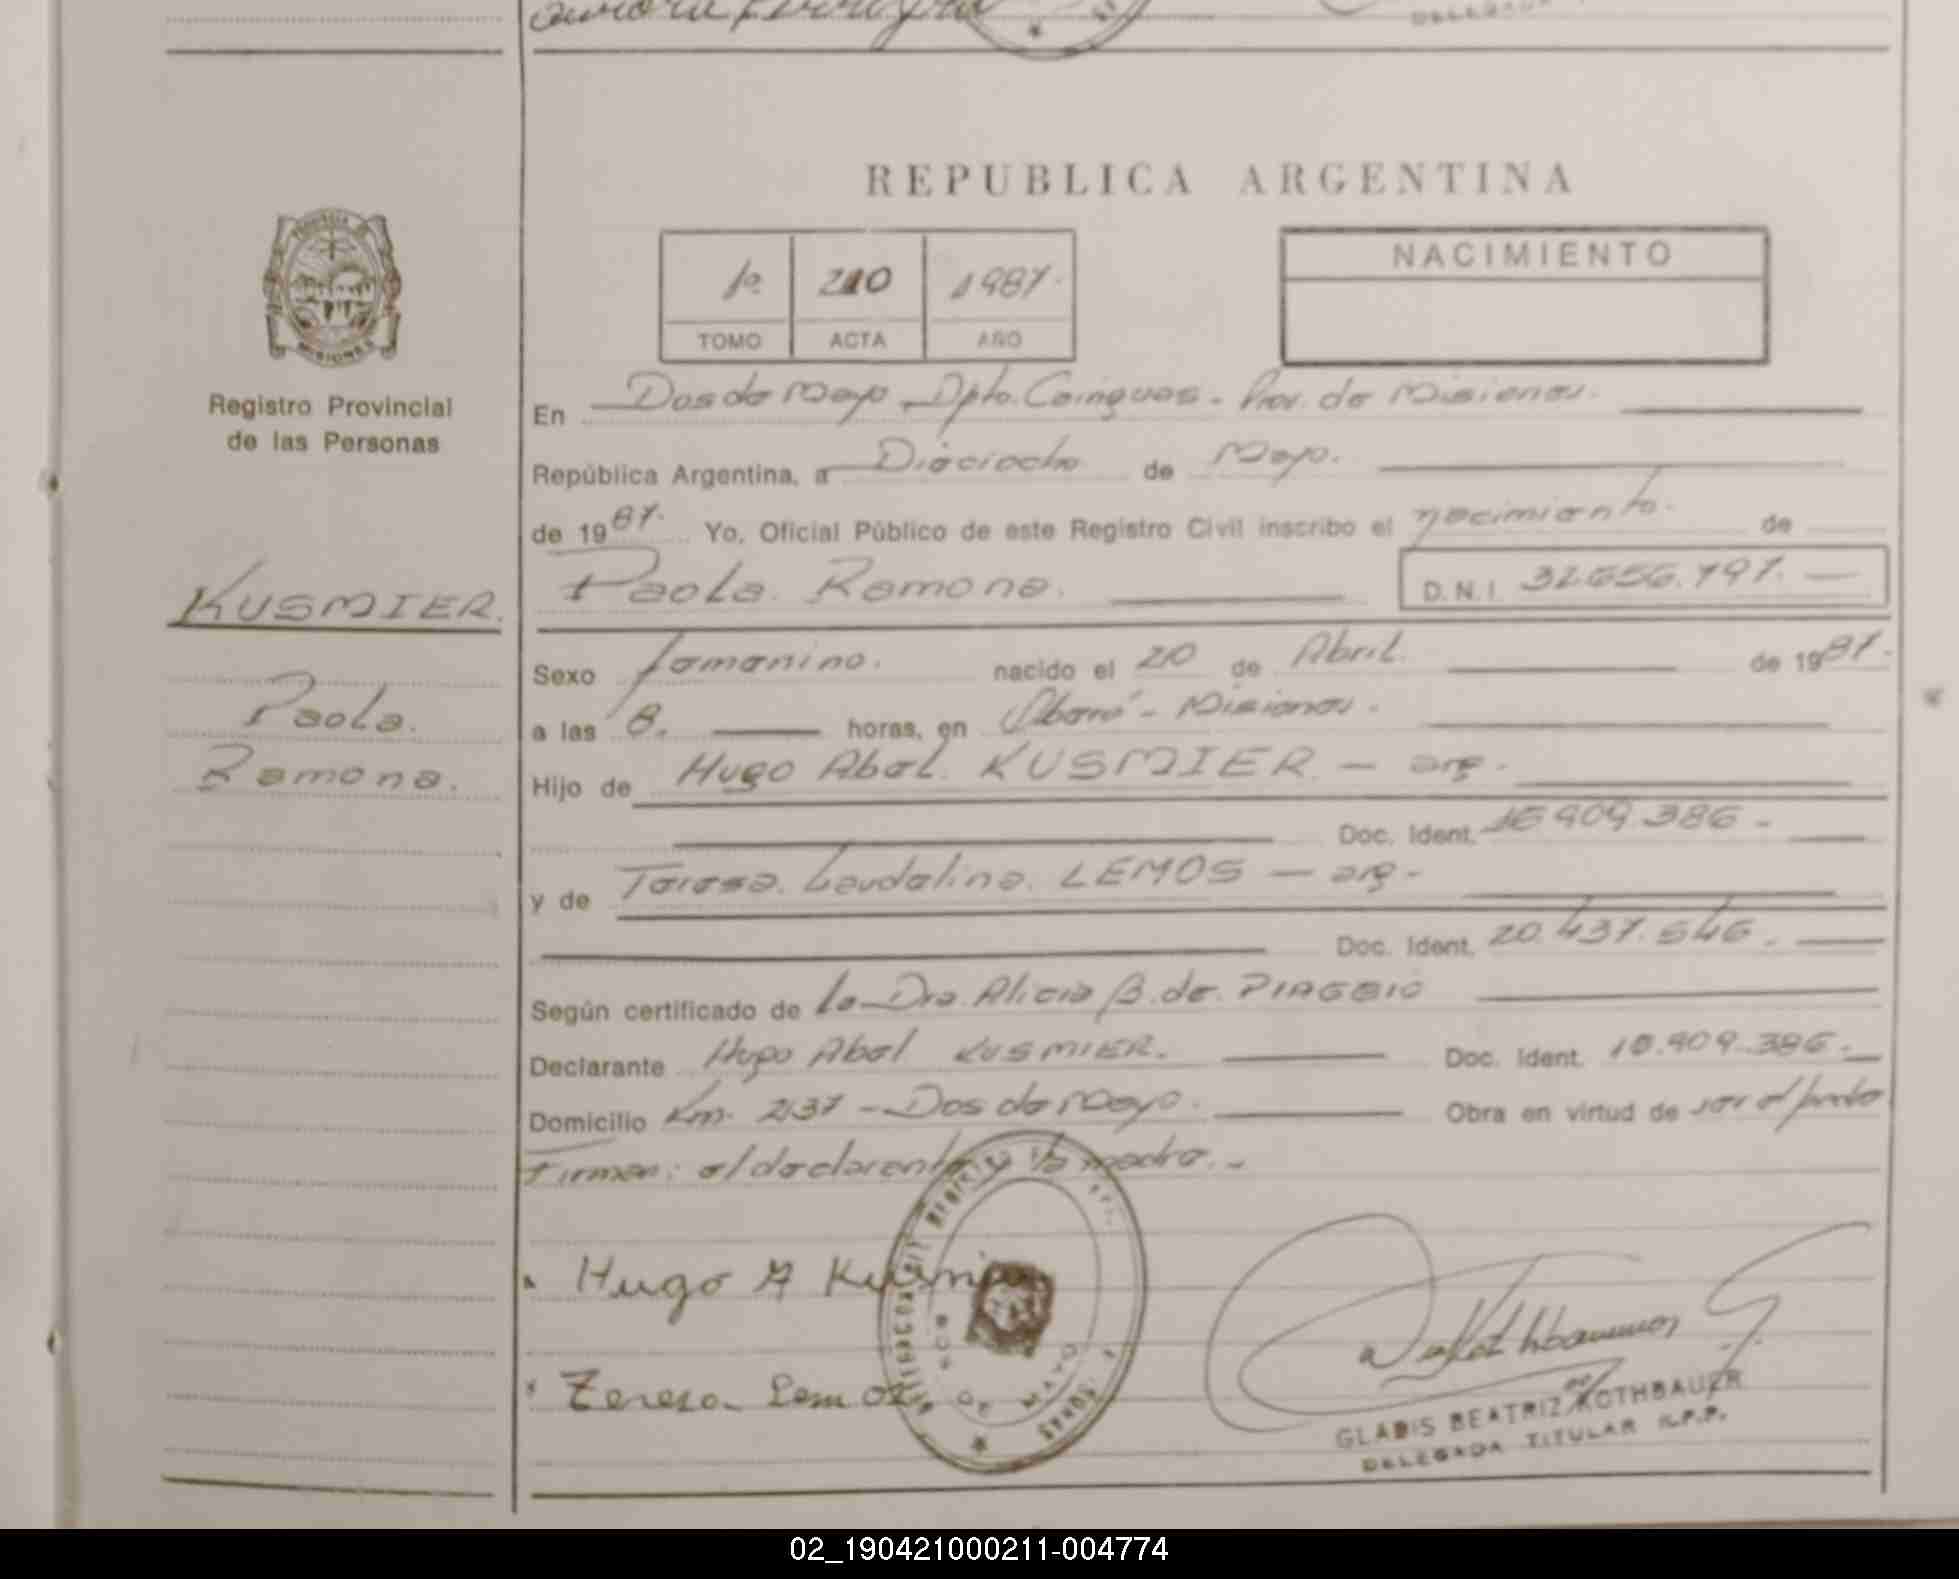 DELEGADA
REPUBLICA ARGENTINA
NACIMIENTO
1º 210 1987.
TOMO ACTA AÑO
PROVINCIA
MISIONES
Registro Provincial
de las Personas
En Dos de Mayo, Dpto. Cainguas - Prov. de Misiones.
República Argentina, a Dieciocho de Mayo.
de 1987. Yo, Oficial Público de este Registro Civil inscribo el nacimiento. de
KUSMIER. Paola Ramona. D.N.I. 32.656.797.
Sexo femenino. nacido el 20 de Abril. de 1987.
Paola.
a las 8. horas, en Aberá - Misiones.
Ramona.
Hijo de Hugo Abel. KUSMIER. - arg.
Doc. Ident. 16.909.386 -
y de Teresa. Laudelina. LEMOS - arg -
Doc. Ident. 20.437.546.
Según certificado de la Dra. Alicia B. de. PIAGGIO
Declarante Hugo Abel KUSMIER. Doc. Ident. 16.909.386.
Domicilio Km. 237 - Dos de Mayo. Obra en virtud de ser el padre
Firman: el declarante y la madre. -
Hugo A Kusmier
DOS DE MAYO
Teresa Lemos
GLADIS BEATRIZ ROTHBAUER
DELEGADA TITULAR R.P.P.
02_190421000211-004774